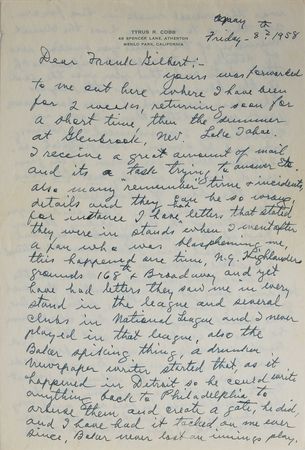 TYRUS R. COBB
48 SPENCER LANE, ATHERTON
MENLO PARK, CALIFORNIA
Friday - 8th 1958
Dear Frank Gilbert;-
yours was forwarded
to me out here where I have been
for 2 weeks, returning soon for
a short time, then the summer
at Glenbrook, Nev. Lake Tahoe.
I receive a great amount of mail
and its a task trying to answer etc.
also many "remember" time & incidents
details and they can be so wrong,
for instance I have letters that stated
they were in stands when I went after
a fan who was blaspheming me,
this happened one time, N.Y. Highlanders
grounds 168th & Broadway and yet
have had letters they saw me in every
stand in the league and several
clubs in National League and I never
played in that league, also the
Baker spiking thing, a drunken
newspaper writer started that, as it
happened in Detroit so he could write
anything back to Philadelphia to
arouse them and create a gate, he did,
and I have had it tacked on me ever
since, Baker never lost an innings play.